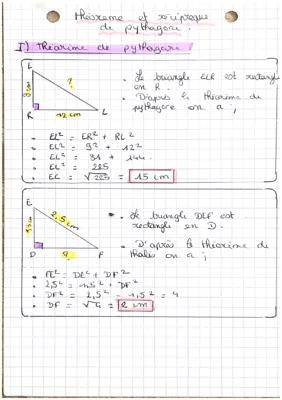 théorème et réciproque
de pythagore.
I) Théorème de pythagore
E
?
9 cm
R
12 cm
L
• Le triangle ELR est rectangle
en R.
• D'après le théorème de
pythagore on a :
• EL² = ER² + RL²
• EL² = 9² + 12²
• EL² = 81 + 144
• EL² = 225
• EL = √225 = 15 cm
E
2,5 cm
1,5 cm
D
?
F
• Le triangle DEF est
rectangle en D.
• D'après le théorème de
thalès on a :
• FE² = DE² + DF²
• 2,5² = 1,5² + DF²
• DF² = 2,5² - 1,5² = 4
• DF = √4 = 2 cm